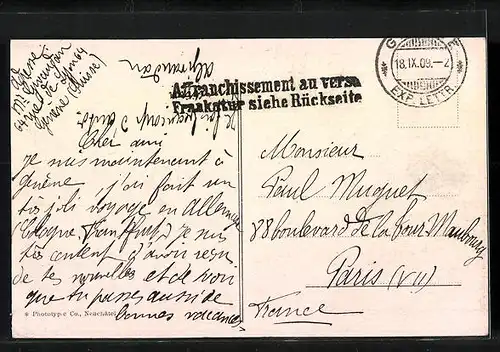 Adresse
Genève (Suisse)
Affranchissement au verso
Frankatur siehe Rückseite
18.IX.09.-2
EXP. LETTR.
Cher ami
Je suis maintenant à
Genève, j'ai fait un
très joli voyage en Allemagne
(Cologne, Francfort) je suis
très content d'avoir reçu
de tes nouvelles et de voir
que tu passes aussi de
bonnes vacances
Monsieur
Paul Muguet
88 boulevard de la Tour Maubourg
Paris (VII)
France
Phototypie Co., Neuchâtel